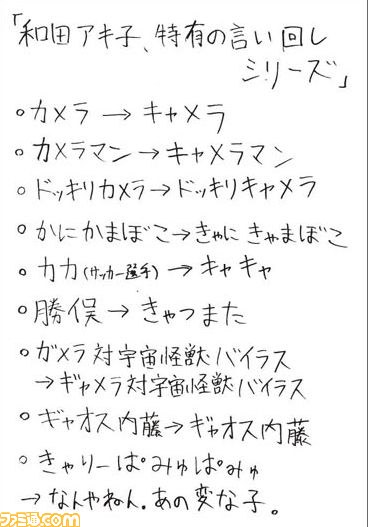 「和田アキ子、特有の言い回し
シリーズ」
○カメラ→キャメラ
○カメラマン→キャメラマン
○ドッキリカメラ→ドッキリキャメラ
○かにかまぼこ→きゃにきゃまぼこ
○カカ(サッカー選手)→キャキャ
○勝俣→きゃつまた
○ガメラ対宇宙怪獣バイラス
→ギャメラ対宇宙怪獣バイラス
○ギャオス内藤→ギャオス内藤
○きゃりーぱみゅぱみゅ
→なんやねん。あの変な子。
ファミ通.com